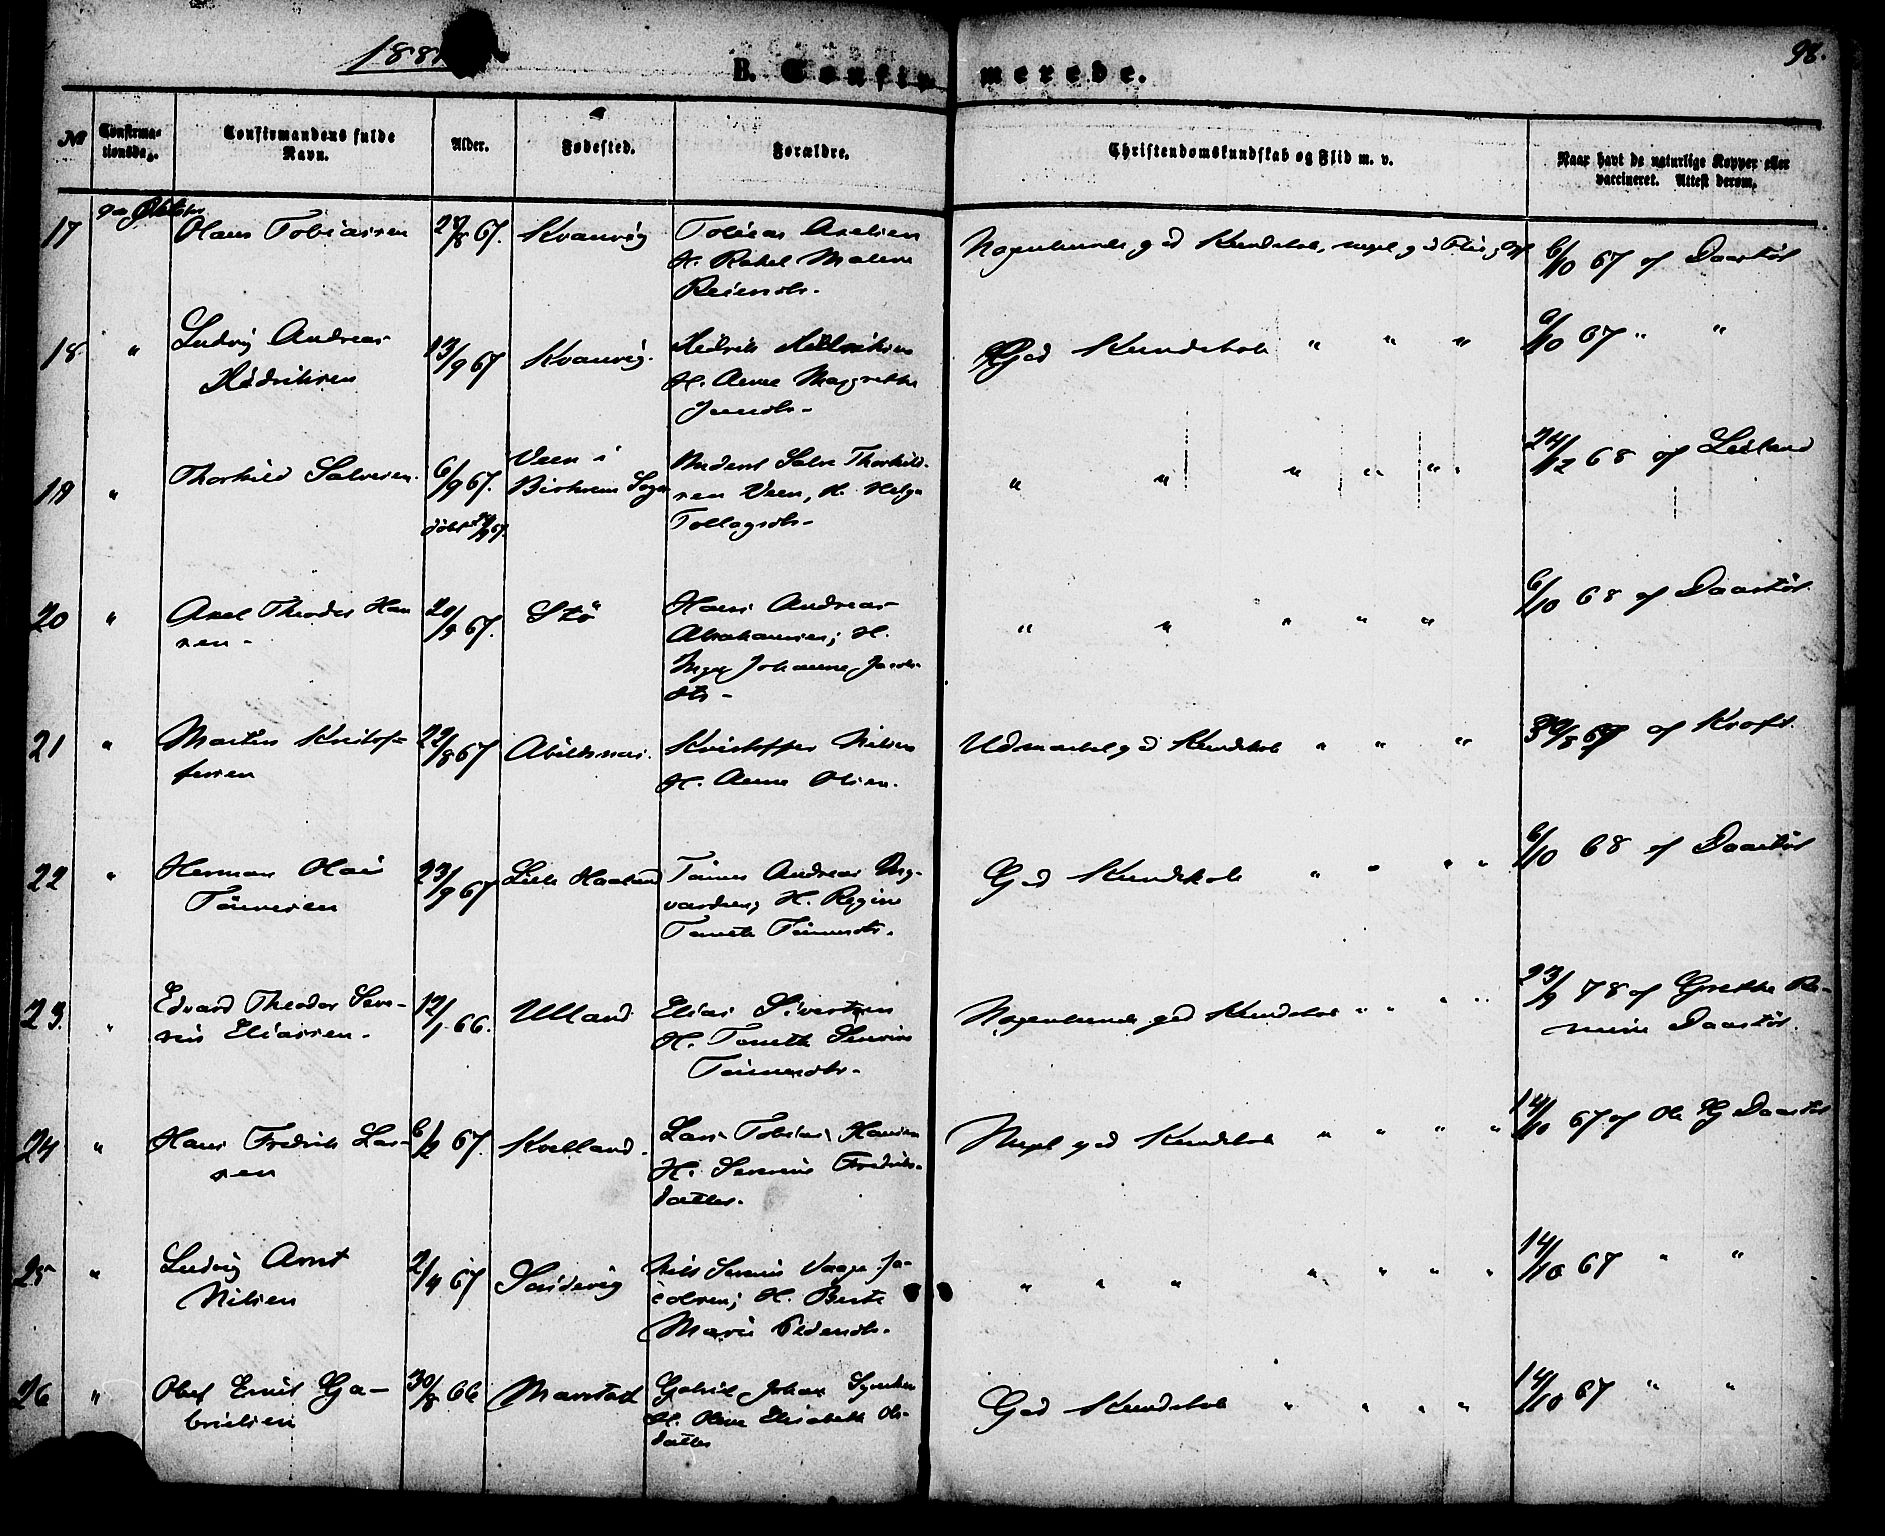 188
98.
B. Confirmerede.
No
Confirma-
tionsdag.
Confirmandens fulde
Navn.
Alder.
Fødested.
Forældre.
Christendomskundskab og Flid m. v.
Naar havt de naturlige Kopper eller
vaccineret. Attest derom.
17
Olaus Tobiassen
28/8 67.
Kvanvig
Tobias Axelsen
H. Rakel Malene
Reiersdtr.
Nogenlunde god Kundskab, meget god Flid og Opf
6/10 67 af Daastøl
18 "
Ludvig Andreas
Hedriksen
13/9 67
Kvanvig.
H. Anne Magrethe
Jensdtr.
God Kundskab " " "
6/10 67 " "
19 "
Thorkild Salvesen
6/9 67.
døbt
Veen i
Birkrem Sogn
Salve Thorkild-
sen Veen, H. Helga
Tollagsdtr.
" " " " "
24/12 68 af Leiland
20 "
Axel Theodor Han
sen -
20/5 67.
Stø
Hans Andreas
Abrahamsen; H.
Inger Johanne Jacobs-
dtr -
" " " " "
6/10 68 af Daastøl.
21 "
Martin Kristof-
fersen
22/8 67
Abelsnæs.
Kristoffer Nilsen
H. Anne Olsen.
Udmærket god Kundskab " " "
af Kraft.
22 "
Herman Olai
Tønnesen
23/9 67
Lille Haaland
Tønnes Andreas Ing-
vardsen, H. Regine
Tomete Tønnesdtr.
God Kundskab " " " "
6/10 68 af Daastøl
23. "
Edvard Theodor Seve-
rin Eliassen.
12/1 66.
Ulland
Elias Sivertsen
H. Tomette Severine
Tønnesdtr.
Nogenlunde god Kundskab " " " "
23/9 78 af Grethe Ra-
mine Daastøl.
24 "
Hans Fredrik Lar-
sen
6/2 67.
Kvelland.
Lars Tobias Hansen
H. Severine Fredriks-
datter.
Meget god Kundskab " " " "
14/10 67 af Ole G Daastøl
25 "
Ludvig Arnt
Nilsen
2/4 67
Sandvig
Nils Severin Vaage Ja-
cobsen; H. Berte
Marie Pedersdtr.
" " " " " " "
14/10 67 " "
26 "
Olaf Emil Ga-
brielsen
30/8 66
Marstad
Gabriel Johan
H. Oline Elisabeth Ols-
datter
God Kundskab " " " "
14/10 67 " "